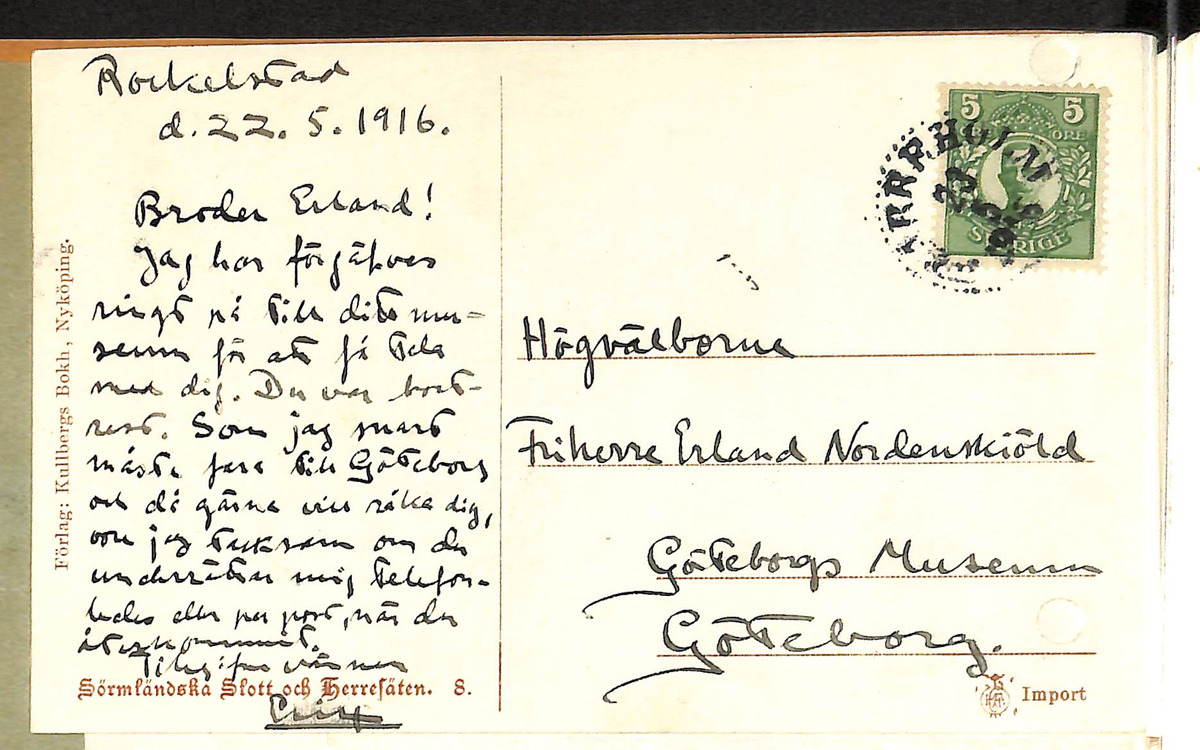 Rockelstad
d. 22. 5. 1916.
Broder Erland!
Jag har förgäfves
ringt på till ditt mu-
seum för att få tala
med dig. Du var bort-
rest. Som jag snart
måste fara till Göteborg
och då gärna vill råka dig,
vore jag tacksam om du
underrättar mig telefon-
ledes eller per post, när du
återkommit.
Tillgifne vännen
Förlag: Kullbergs Bokh, Nyköping.
Sörmländska Slott och Herresäten. 8.
5 5
ÖRE
SVERIGE
Högvälborne
Friherre Erland Nordenskiöld
Göteborgs Museum
Göteborg.
Import